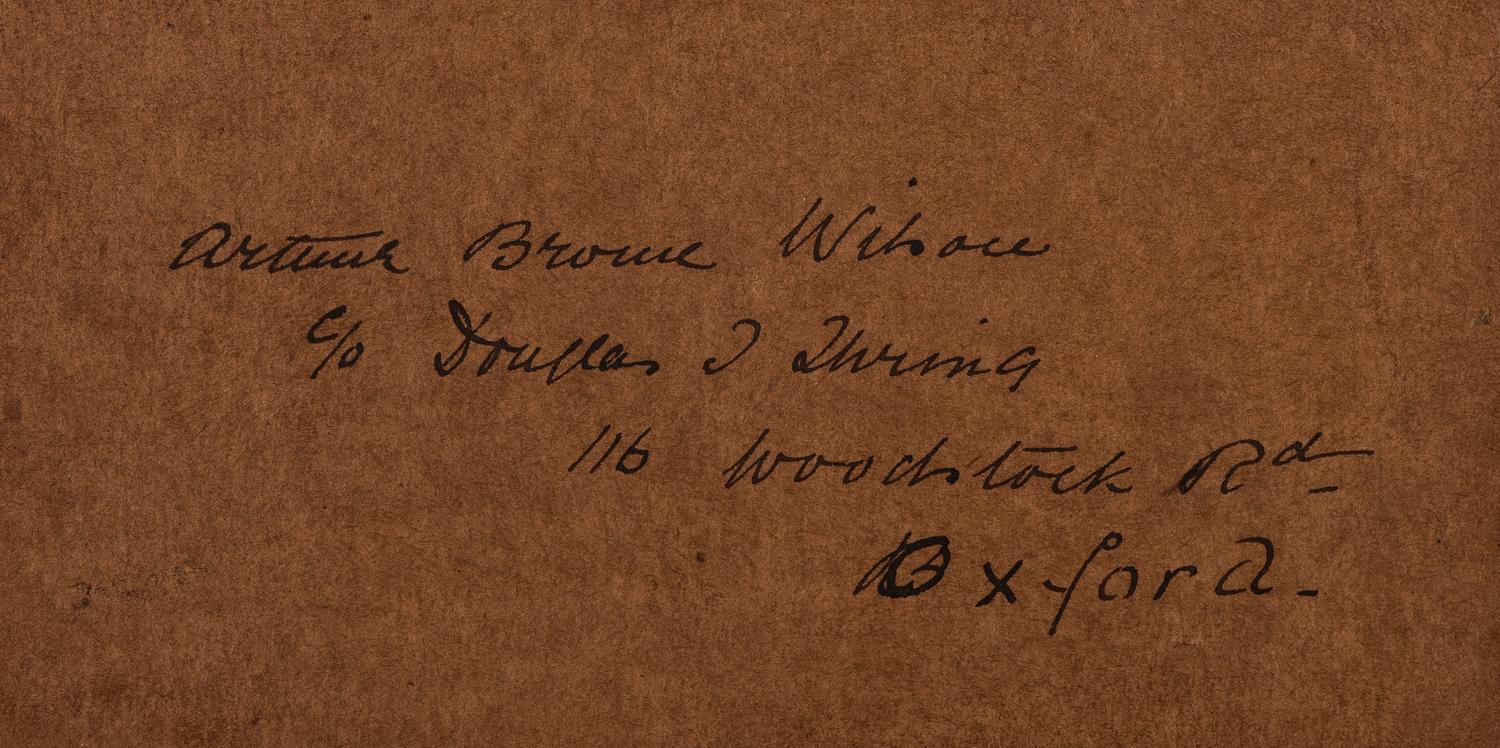 Arthur Brome Wilson
c/o Douglas J Thring
116 Woodstock Rd
Oxford.